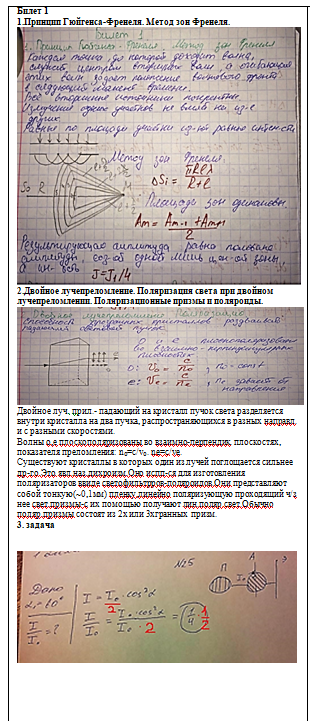 Билет 1
1.Принцип Гюйгенса-Френеля. Метод зон Френеля.
Билет 1
1. Принцип Гюйгенса - Френеля. Метод зон Френеля
Каждая точка, до которой доходит волна,
служит центром вторичных волн, а огибающая
этих волн задает положение волнового фронта
в следующий момент времени.
Все вторичные источники когерентны
Излучения одних участков не влияет на из-е
других.
Равные по площади участки равной интенсив
Метод зон Френеля
S₀ R M
ΔSi = πRlλ / R+l
Площади зон одинаковы.
Am = Am-1 + Am+1 / 2
Результирующая амплитуда равна половине
амплитуды, соз-ой одной лишь зоны,
J=J₁/4
2.Двойное лучепреломление. Поляризация света при двойном
лучепреломлении. Поляризационные призмы и поляроиды.
Двойное лучепреломление
Способность кристаллов раздваивать
падающий световой пучок
о и е плоскополяризованы
во взаимно-перпендикулярных
плоскостях
о: v₀ = c/n₀, n₀ - const
е: vₑ = c/nₑ, nₑ зависит от
направления
Двойное луч, прил.- падающий на кристалл пучок света разделяется
внутри кристалла на два пучка, распространяющихся в разных направл.
и с разными скоростями.
Волны о,е плоскополяризованы во взаимно-перпендик. плоскостях,
показателя преломления: n₀=c/v₀. nе=c/vе.
Существуют кристаллы в которых один из лучей поглощается сильнее
др-го.Это явл наз дихроизм.Оно испл-ся для изготовления
поляризаторов ввиде светофильтров-поляроидов.Они представляют
собой тонкую(~0,1мм) пленку,линейно поляризующую проходящий ч/з
нее свет.призмы-с их помощью получают лин.поляр.свет.Обычно
поляр.призмы состоят из 2х или 3хгранных призм.
3. задача
№5
Дано
I/I₀ = ?
I = I₀·cos²α / 2
I/I₀ = I₀·cos²α / I₀·2 = 1/4 1/2
П А Э